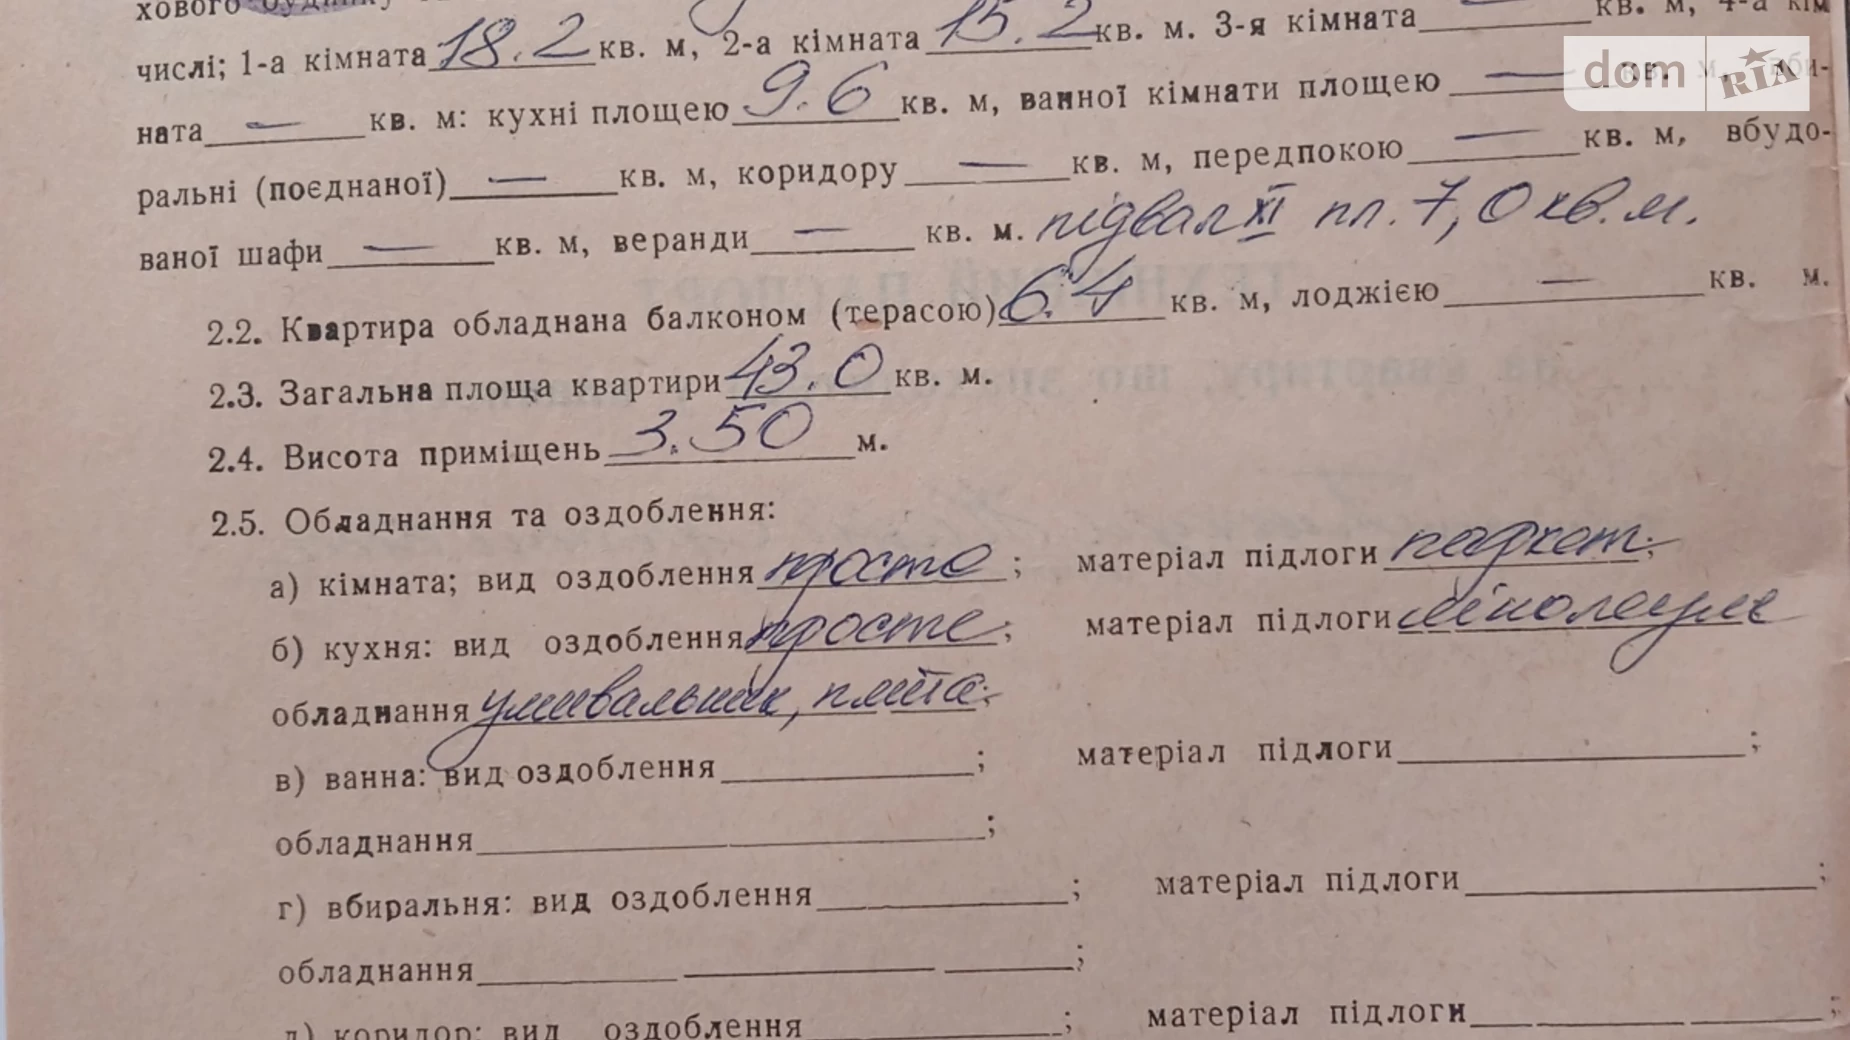 хового будинку
числі; 1-а кімната 18.2 кв. м, 2-а кімната 15.2 кв. м. 3-я кімната — кв. м, 4-а кім
ната — кв. м: кухні площею 9.6 кв. м, ванної кімнати площею — кв. м, вби-
ральні (поєднаної) — кв. м, коридору — кв. м, передпокою — кв. м, вбудо-
ваної шафи — кв. м, веранди — кв. м. підвал XI пл. 7,0 кв. м.
2.2. Квартира обладнана балконом (терасою) 6.4 кв. м, лоджією — кв. м.
2.3. Загальна площа квартири 43.0 кв. м.
2.4. Висота приміщень 3.50 м.
2.5. Обладнання та оздоблення:
а) кімната; вид оздоблення просте; матеріал підлоги паркет;
б) кухня: вид оздоблення просте; матеріал підлоги лінолеум
обладнання умивальник, плита;
в) ванна: вид оздоблення ; матеріал підлоги ;
обладнання ;
г) вбиральня: вид оздоблення ; матеріал підлоги ;
обладнання ;
д) коридор: вид оздоблення ; матеріал підлоги ;
dom RIA